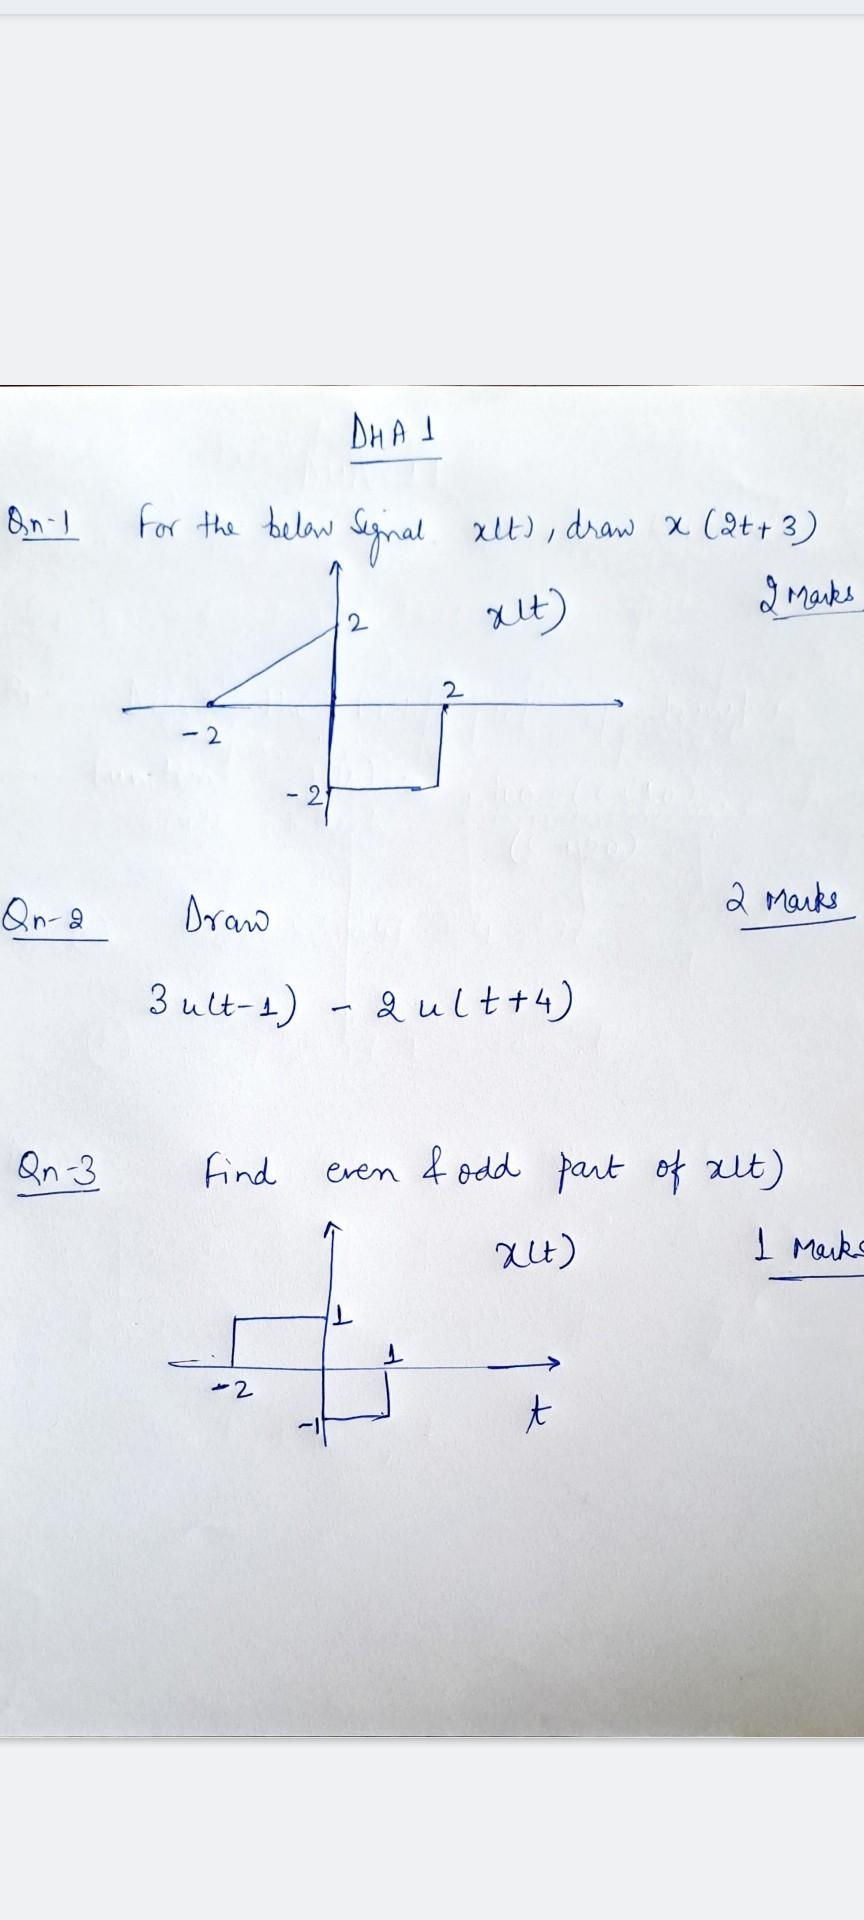 DHA 1
Qn-1 For the below Signal x(t), draw x (2t+3)
2 Marks
2 x(t)
2
-2
-2
Qn-2 Draw 2 Marks
3 u(t-1) - 2 u(t+4)
Qn-3 Find even & odd part of x(t)
x(t) 1 Marks
1
1
-2
-1 t